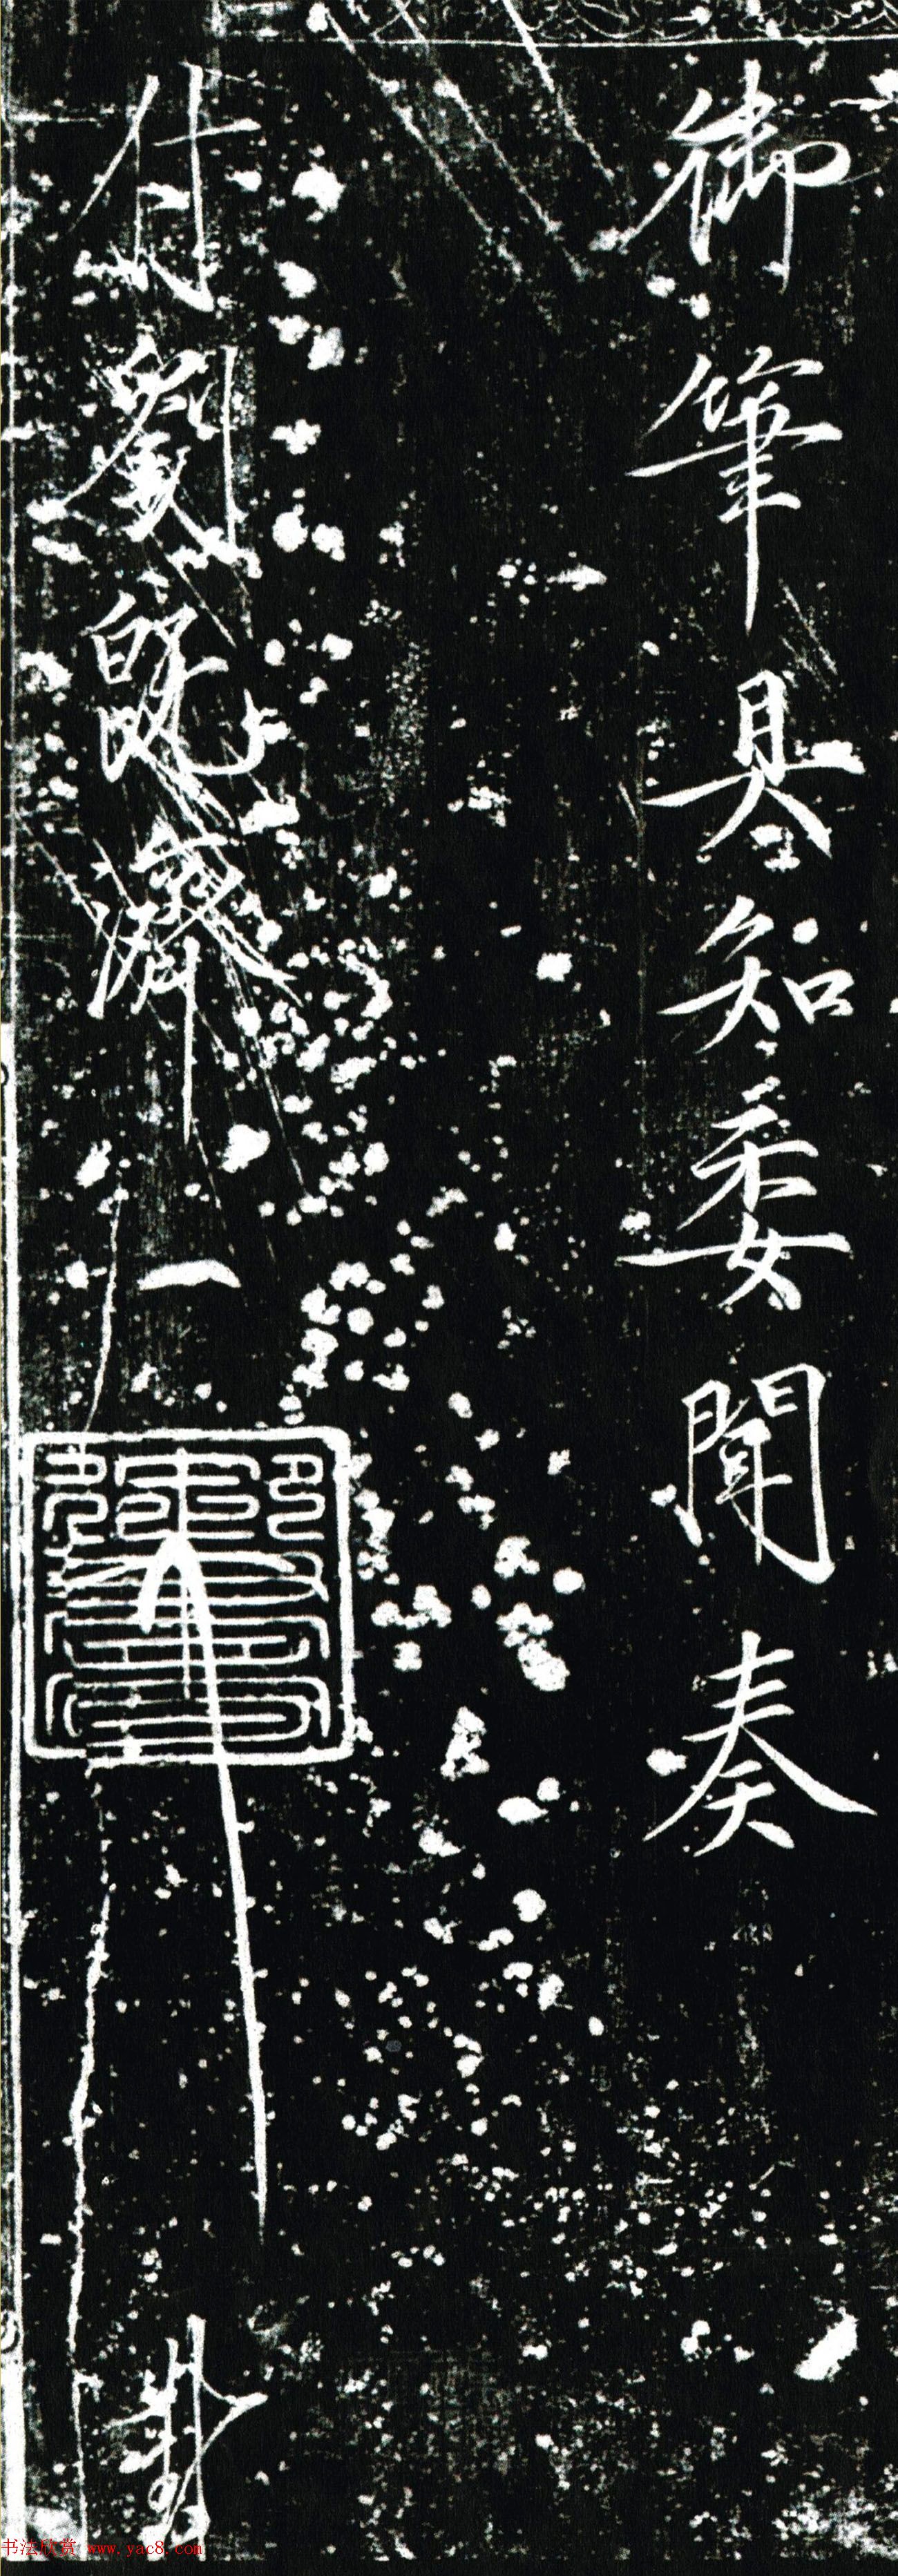 御筆具知委聞奏
付劉既濟
封
书法欣赏 www.yac8.com